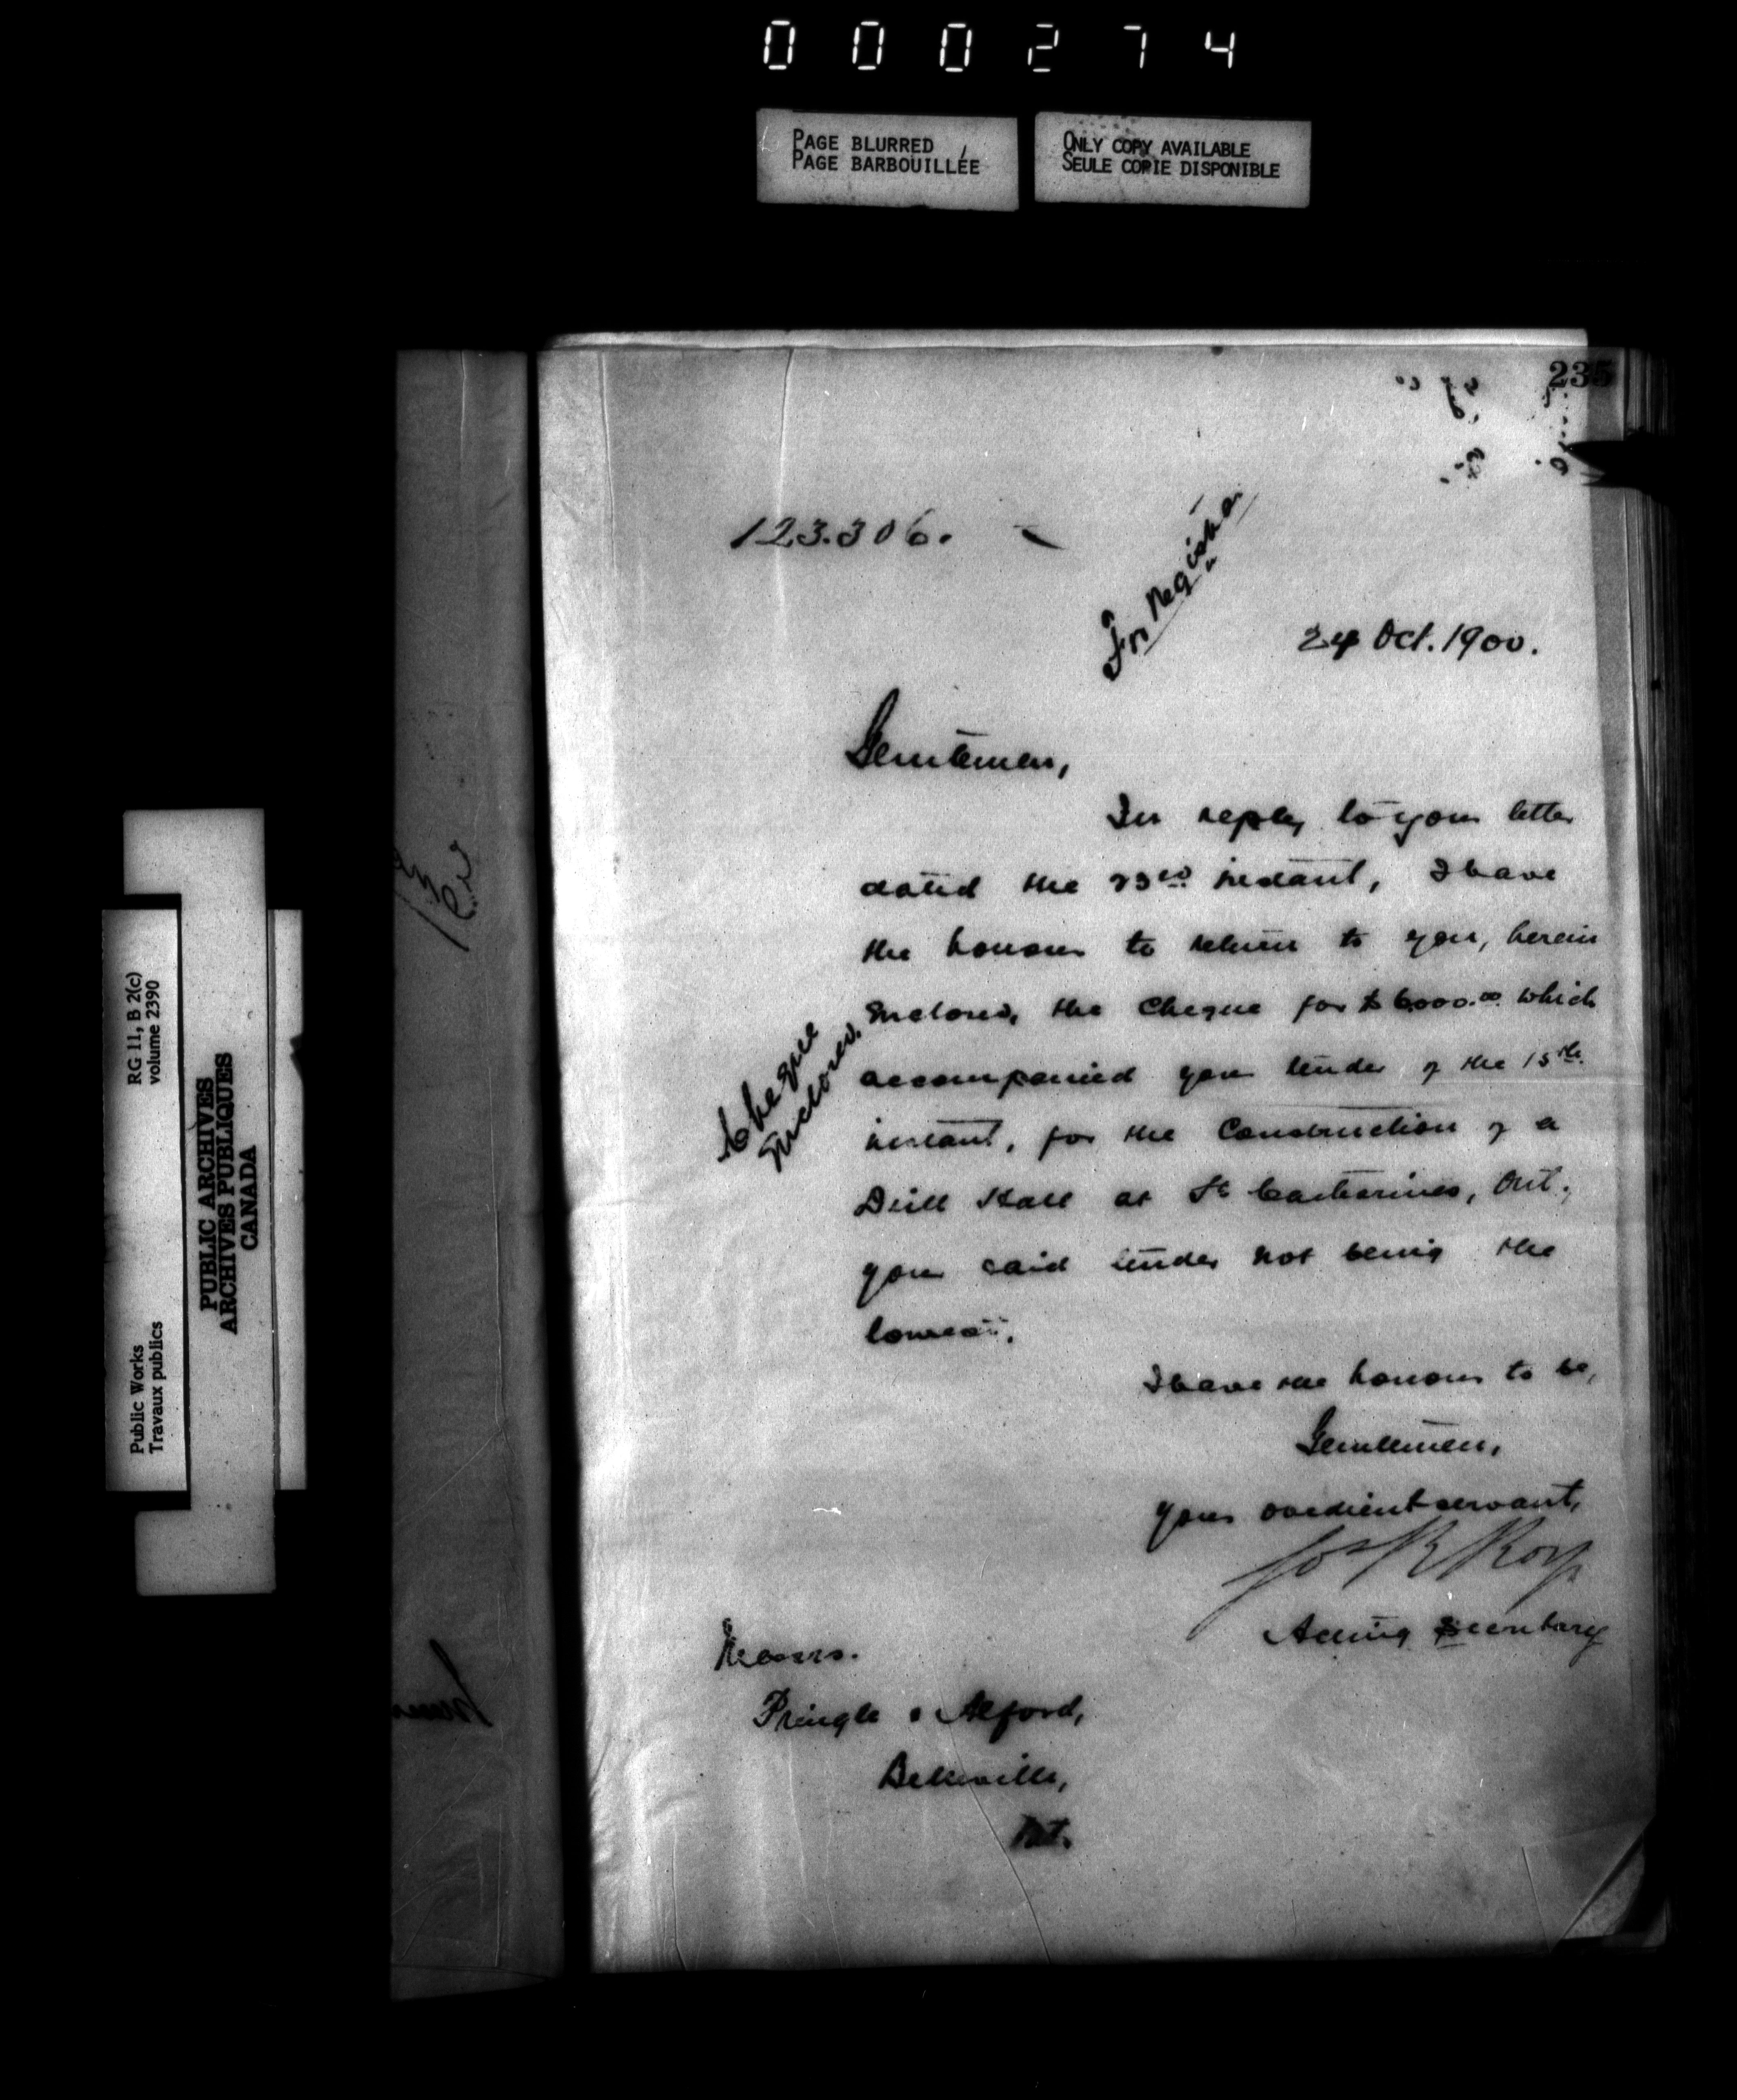 000274
PAGE BLURRED
PAGE BARBOUILLÉE
ONLY COPY AVAILABLE
SEULE COPIE DISPONIBLE
235
123.306.
For Register
24 Oct. 1900.
Gentlemen,
In reply to your letter
dated the 23rd instant, I have
the honour to return to you, herein
Enclosed, the Cheque for $6000.00 which
accompanied your tender of the 15th
instant, for the Construction of a
Drill Hall at St Catharines, Ont.,
your said tender not being the
lowest.
Cheque
Enclosed.
I have the honour to be,
Gentlemen,
your obedient servant,
Jos R Roy
Acting Secretary
Messrs.
Pringle & Alford,
Belleville,
Ont.
RG 11, B 2(c)
volume 2390
PUBLIC ARCHIVES
ARCHIVES PUBLIQUES
CANADA
Public Works
Travaux publics